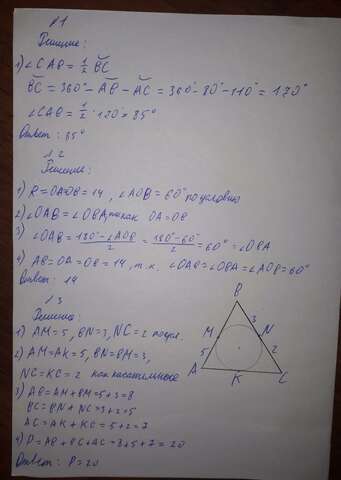 №1
Решение:
1) ∠CAB = 1/2 BC
BC = 360° - AB - AC = 360° - 80° - 110° = 170°
∠CAB = 1/2 · 170° = 85°
Ответ: 85°
№2
Решение:
1) R = OA = OB = 14, ∠AOB = 60° по условию
2) ∠OAB = ∠OBA, так как OA = OB
3) ∠OAB = (180° - ∠AOB)/2 = (180° - 60°)/2 = 60° = ∠OBA
4) AB = OA = OB = 14, т.к. ∠OAB = ∠OBA = ∠AOB = 60°
Ответ: 14
№3
Решение:
1) AM = 5, BN = 3, NC = 2
2) AM = AK = 5, BN = BM = 3,
NC = KC = 2 как касательные
3) AB = AM + BM = 5 + 3 = 8
BC = BN + NC = 3 + 2 = 5
AC = AK + KC = 5 + 2 = 7
4) P = AB + BC + AC = 8 + 5 + 7 = 20
Ответ: P = 20
B
3
M
N
5
2
A
K
C